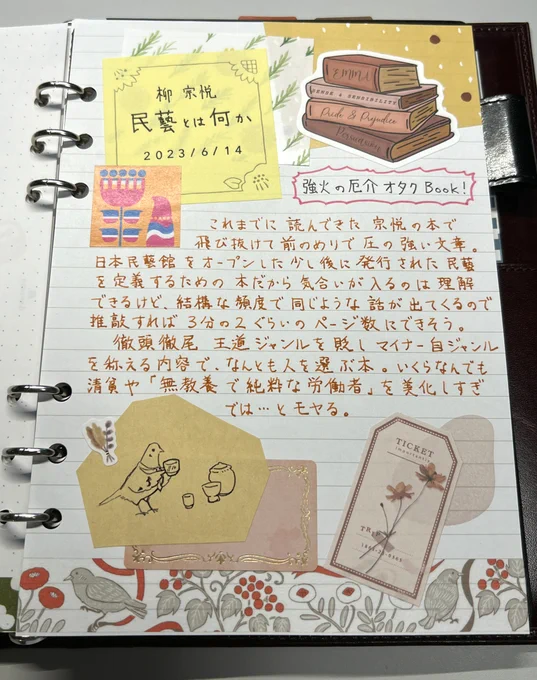 柳 宗悦
民藝とは何か
2023/6/14
EMMA
SENSE & SENSIBILITY
Pride & Prejudice
Persuasion
強火の厄介オタクBook!
これまでに読んできた宗悦の本で
飛び抜けて前のめりで圧の強い文章。
日本民藝館をオープンした少し後に発行された民藝
を定義するための本だから気合いが入るのは理解
できるけど、結構な頻度で同じような話が出てくるので
推敲すれば3分の2ぐらいのページ数にできそう。
徹頭徹尾 王道ジャンルを貶しマイナー自ジャンル
を称える内容で、なんとも人を選ぶ本。いくらなんでも
清貧や「無教養で純粋な労働者」を美化しすぎ
では…とモヤる。
TICKET